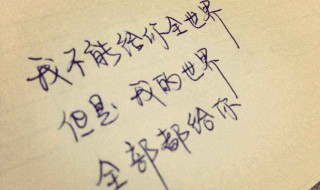 我不能给你全世界
但是 我的世界
全部都给你